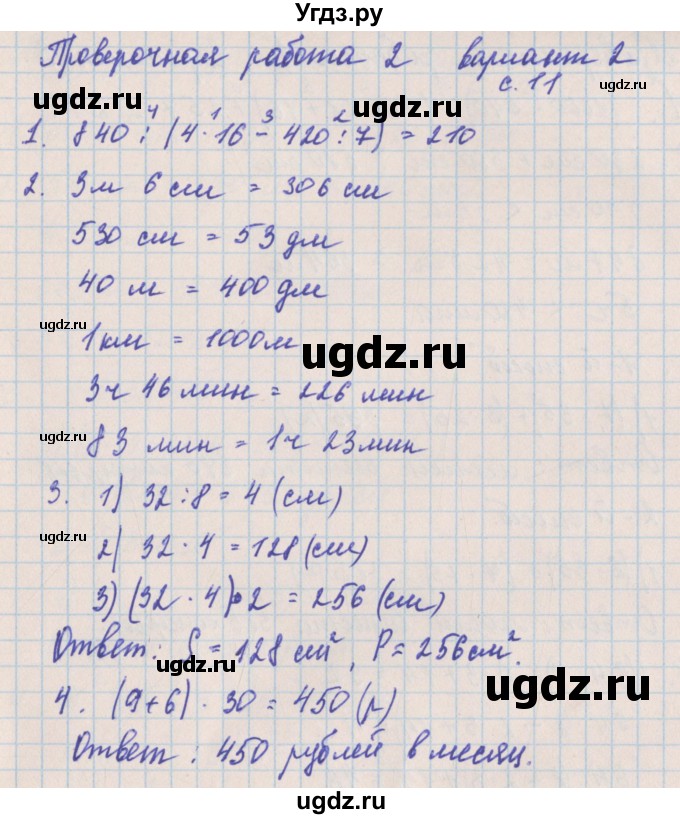 Угдз.ру
Проверочная работа 2 вариант 2
с. 11
ugdz.ru ugdz.ru ugdz.ru
4 1 3 2
1. 840 : (4 · 16 - 420 : 7) = 210
2. 3м 6 см = 306 см
530 см = 53 дм
40 м = 400 дм
ugdz.ru
1 км = 1000м
ugdz.ru
3ч 46 мин = 226 мин
ugdz.ru
83 мин = 1ч 23мин
3. 1) 32 : 8 = 4 (см)
ugdz.ru
2) 32 · 4 = 128 (см)
3) (32 · 4) · 2 = 256 (см)
Ответ: S = 128 см², P = 256 см².
ugdz.ru
ugdz.ru
4. (9+6) · 30 = 450 (р)
Ответ: 450 рублей в месяц.
ugdz.ru
ugdz.ru